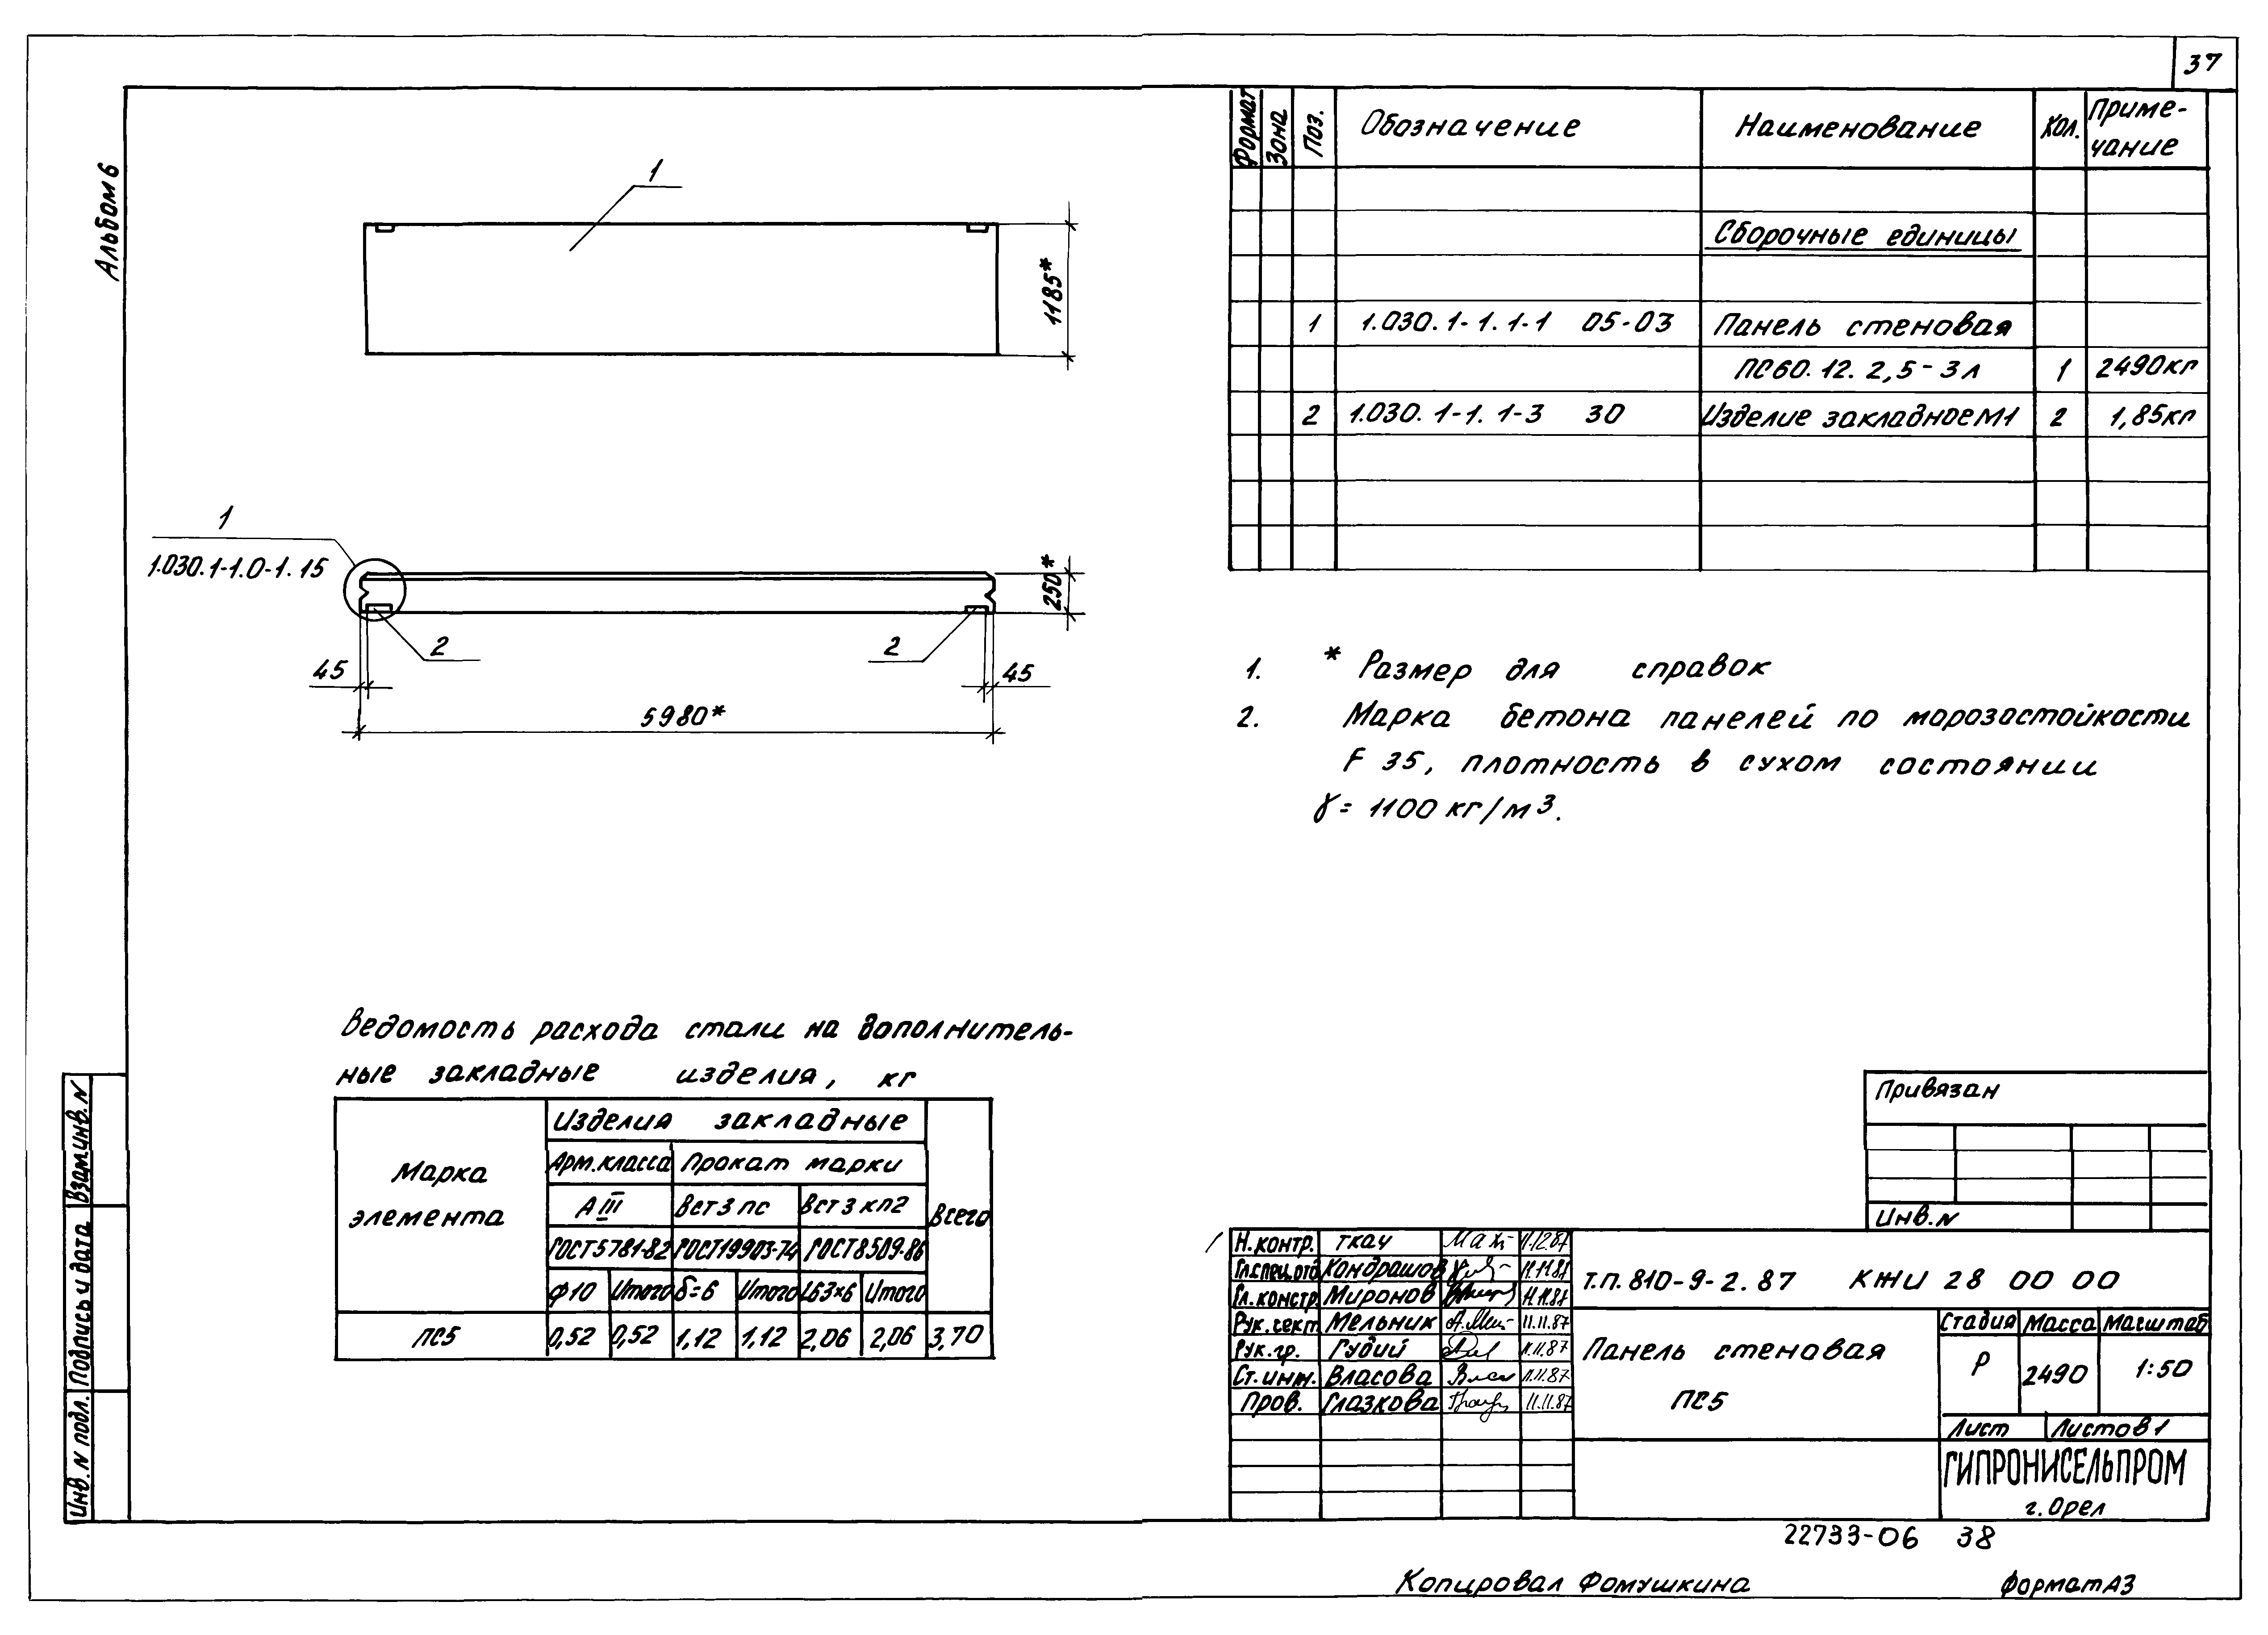 37
Альбом 6
1
1185*
1
1.030.1-1.0-1.15
2
2
250*
45
45
5980*
Формат Зона Поз. Обозначение Наименование Кол. Приме-
чание
Сборочные единицы
1 1.030.1-1.1-1 05-03 Панель стеновая
ПС60.12.2,5-3л 1 2490кг
2 1.030.1-1.1-3 30 Изделие закладное М1 2 1,85кг
1. * Размер для справок
2. Марка бетона панелей по морозостойкости
F 35, плотность в сухом состоянии
γ= 1100 кг/м3.
Ведомость расхода стали на дополнитель-
ные закладные изделия, кг
Марка
элемента
Изделия закладные
Всего
Арм.класса Прокат марки
А III Вст3пс Вст3кп2
ГОСТ5781-82 ГОСТ19903-74 ГОСТ8509-86
Ф10 Итого δ=6 Итого L63×6 Итого
ПС5 0,52 0,52 1,12 1,12 2,06 2,06 3,70
Взам.инв.N
Подпись и дата
Инв.N подл.
Привязан
Инв.N
Н.контр. Ткач 11.12.87
Гл.спец.отд Кондрашов 11.11.87
Гл.констр. Миронов 11.11.87
Рук.сект. Мельник 11.11.87
Рук.гр. Гудий 11.11.87
Ст.инж. Власова 11.11.87
Пров. Глазкова 11.11.87
Т.П.810-9-2.87 КЖИ 28 00 00
Панель стеновая
ПС5
Стадия Масса Масштаб
Р 2490 1:50
Лист Листов 1
ГИПРОНИСЕЛЬПРОМ
г.Орел
22733-06 38
Копировал Фомушкина Формат А3